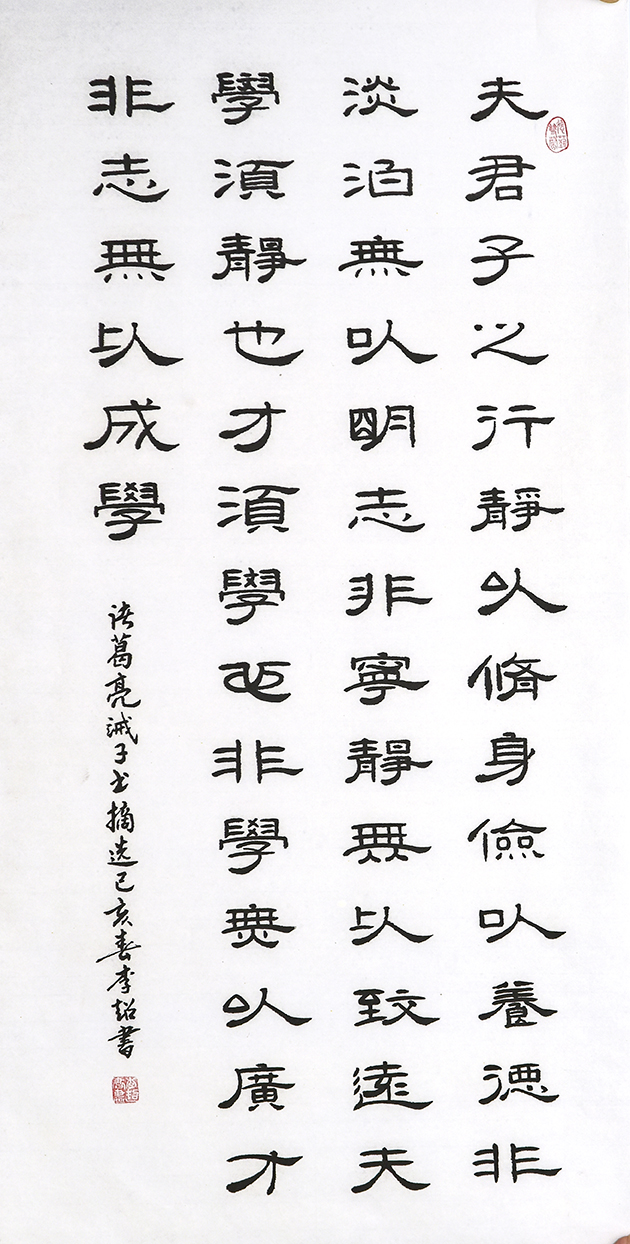 夫君子之行靜以脩身儉以養德非
淡泊無以明志非寧靜無以致遠夫
學須靜也才須學也非學無以廣才
非志無以成學
诸葛亮诫子书摘选己亥春李韶書